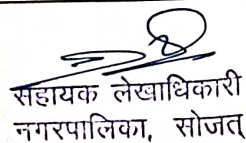 सहायक लेखाधिकारी
नगरपालिका, सोजत्